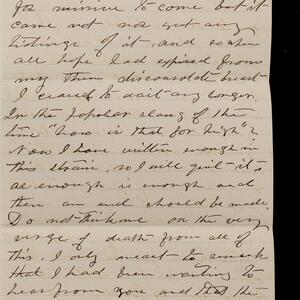 for missive to come but it
came not nor got any
tidings of it, and so when
all hope had expired from
my then disconsolate heart
I ceased to wait any longer.
In the popular slang of the
time "how is that for high"?
Now I have written enough in
this strain, so I will quit it,
as enough is enough and
then an end should be made.
Do not think me on the very
verge of death from all of
this, I only meant to
that I had been wanting to
hear from you and that the